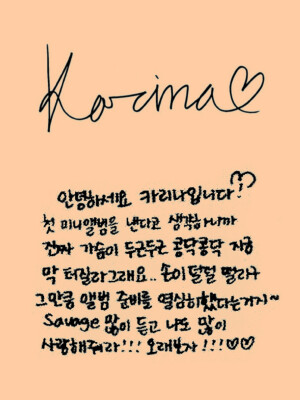 Karina♡
안녕하세요 카리나입니다!♡
첫 미니앨범을 낸다고 생각하니까
진짜 가슴이 두근두근 콩닥콩닥 지금
막 터질라그래요.. 손이 덜덜 떨리구
그만큼 앨범 준비를 열심히했다는거지~
Savage 많이 듣고 나도 많이
사랑해줘라!!! 오래보자!!!♡♡